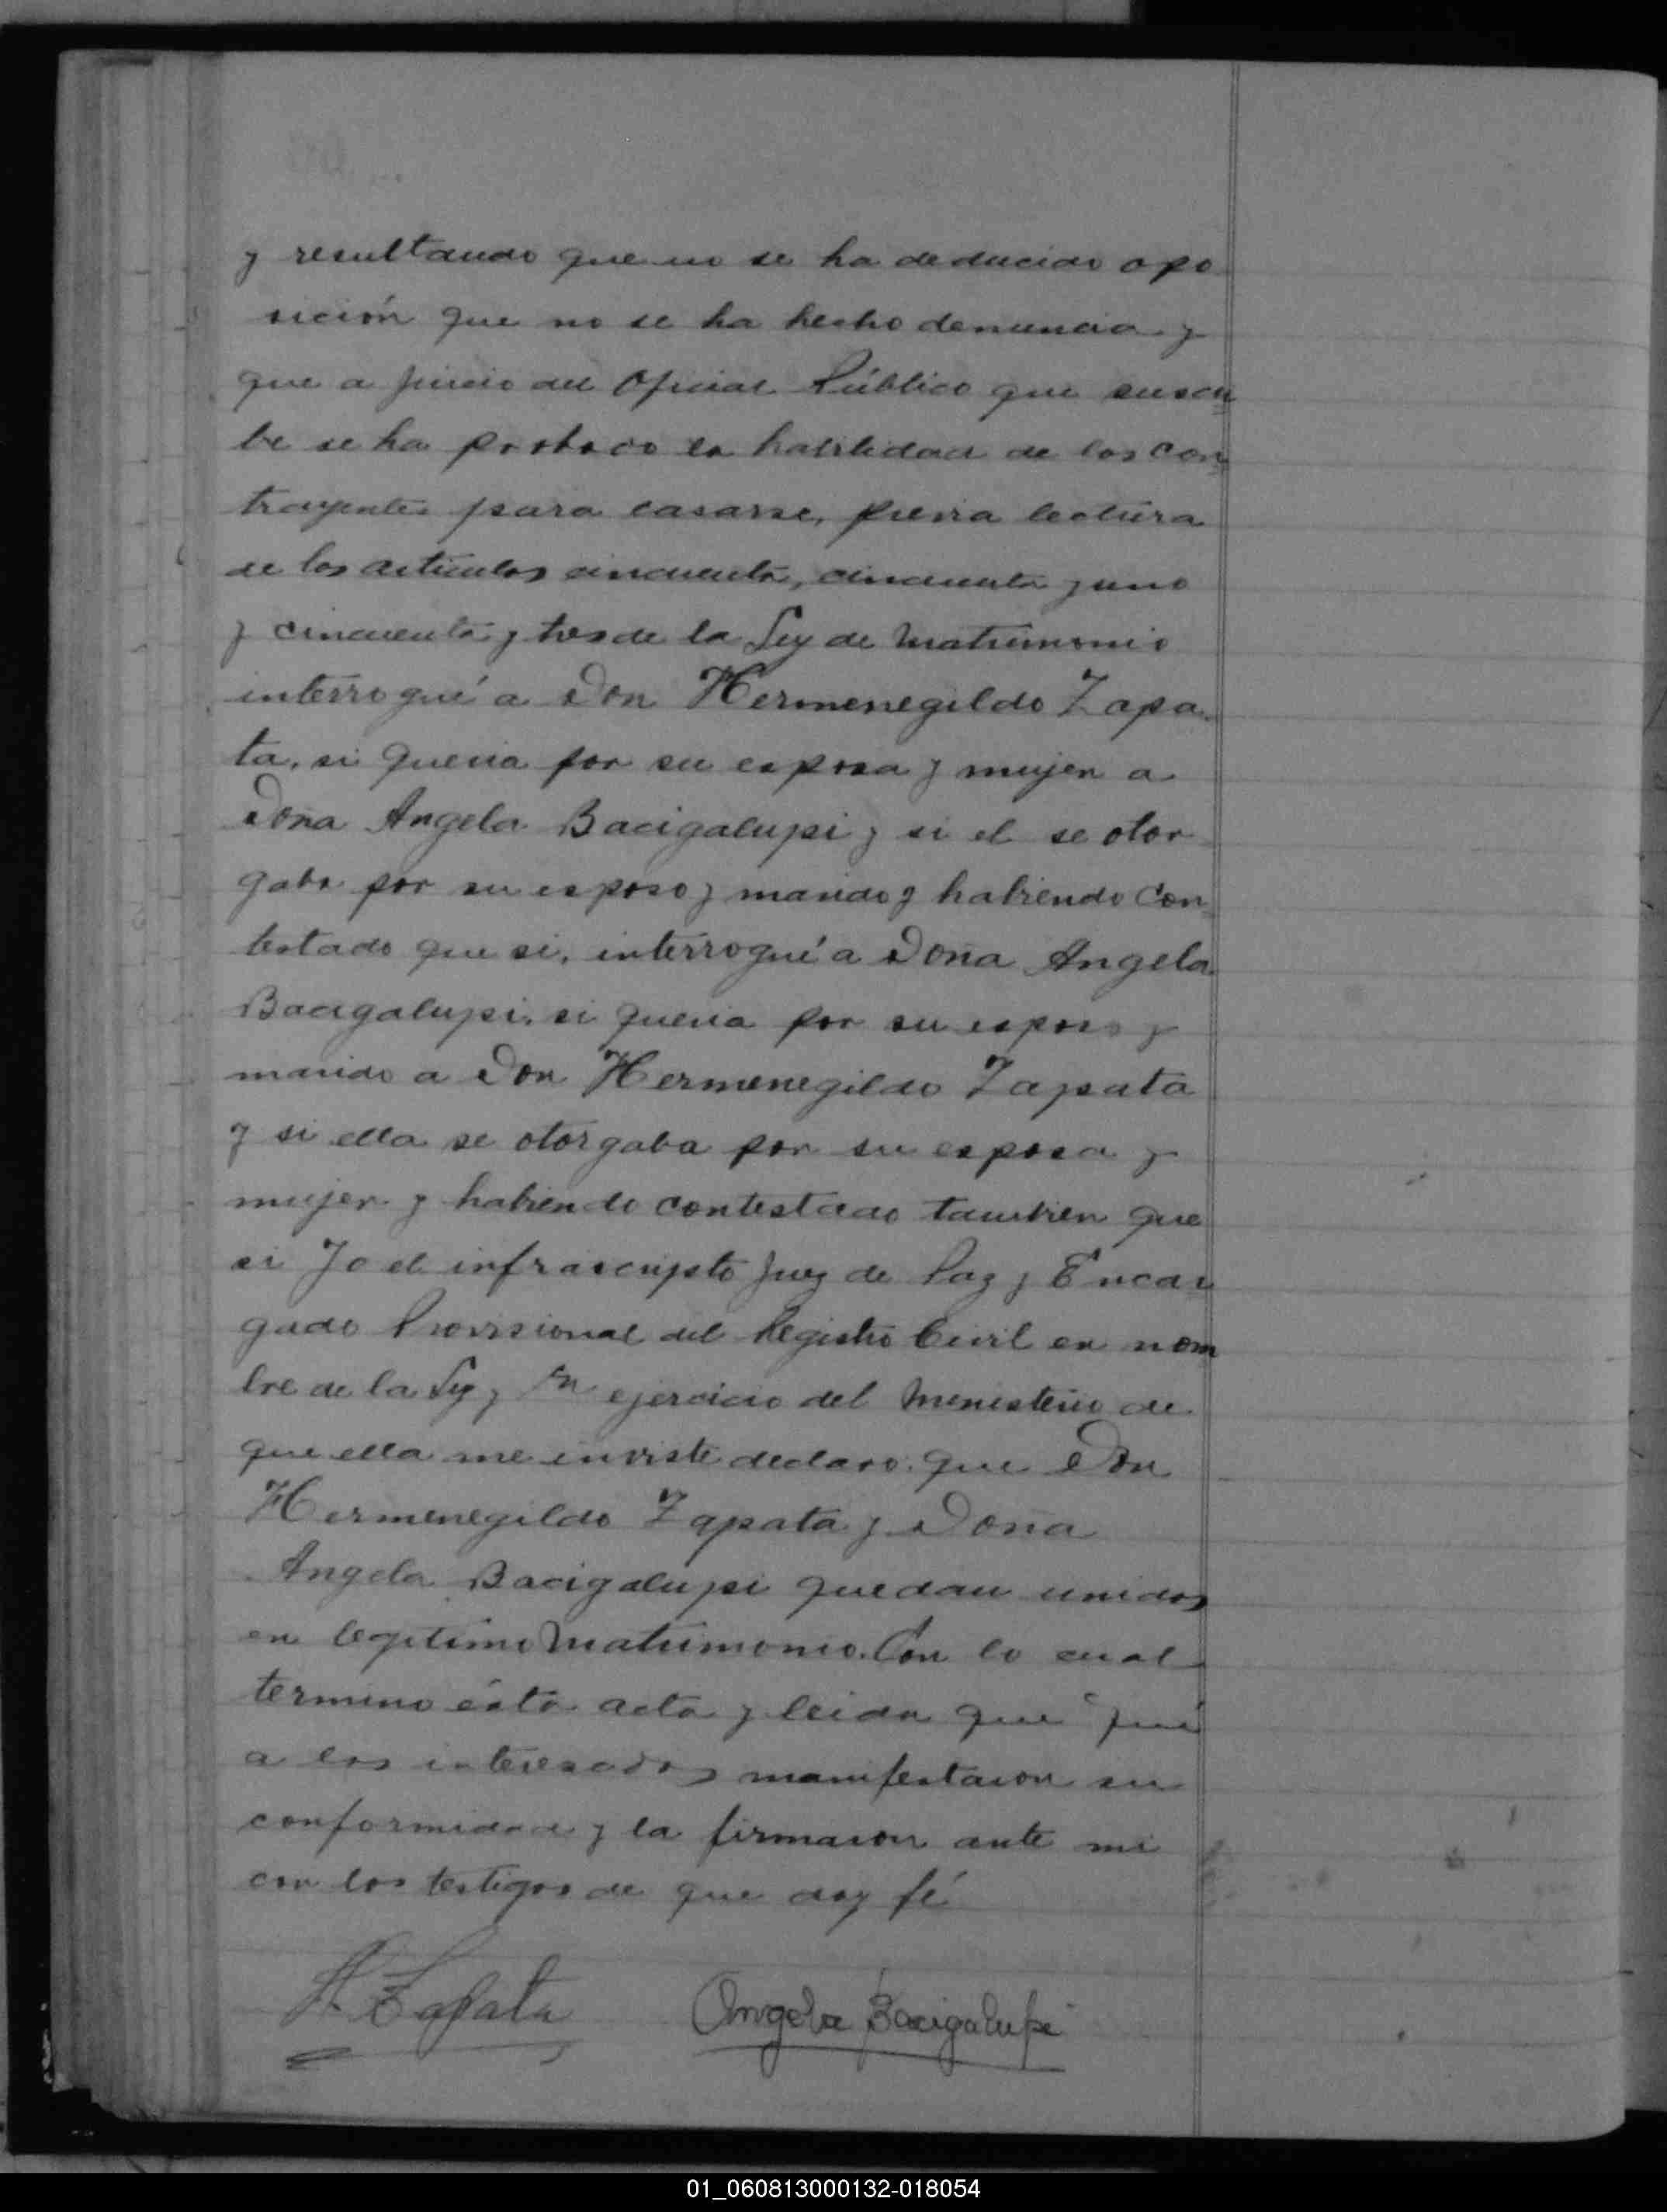 y resultando que no se ha deducido opo
sición que no se ha hecho denuncia y
que a juicio del Oficial Público que suscri
be se ha probado la habilidad de los con
trayentes para casarse, previa lectura
de los articulos cincuenta, cincuenta y uno
y cincuenta y tres de la Ley de Matrimonio
interrogué a Don Hermenegildo Zapa
ta, si queria por su esposa y mujer a
Doña Angela Bacigalupi y si el se otor
gaba por su esposo y marido y habiendo con
testado que si, interrogué a Doña Angela
Bacigalupi, si queria por su esposo y
marido a Don Hermenegildo Zapata
y si ella se otorgaba por su esposa y
mujer y habiendo contestado tambien que
si Yo el infrascripto Juez de Paz y Encar
gado Provisional del Registro Civil en nom
bre de la Ley y en ejercicio del Menisterio de
que ella me inviste declaro que Don
Hermenegildo Zapata y Doña
Angela Bacigalupi quedan unidos
en legitimo Matrimonio. Con lo cual
termino ésta acta y leida que fué
a los interesados manifestaron su
conformidad y la firmaron ante mi
con los testigos de que doy fé
H. Zapata Angela Bacigalupi
01_060813000132-018054